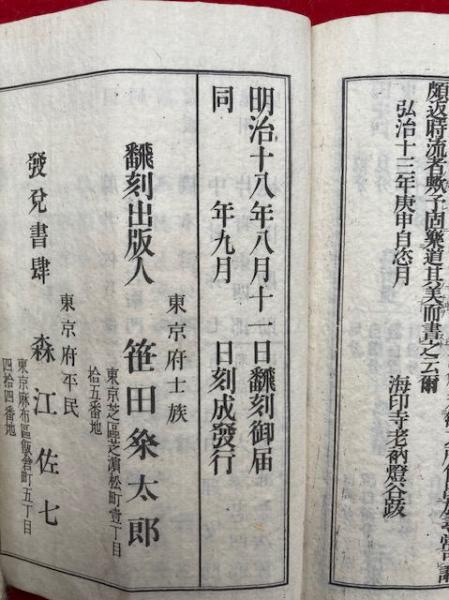 頗返時流者歟予固樂道其美而書之云爾
弘治十三年庚申自恣月　海印寺老衲燈谷跋
明治十八年八月十一日飜刻御届
同　年九月　日刻成發行
東京府士族
飜刻出版人　笹田粂太郎
東京芝區芝濱松町壹丁目
拾五番地
東京府平民
發兌書肆　森江佐七
東京麻布區飯倉町五丁目
四拾四番地